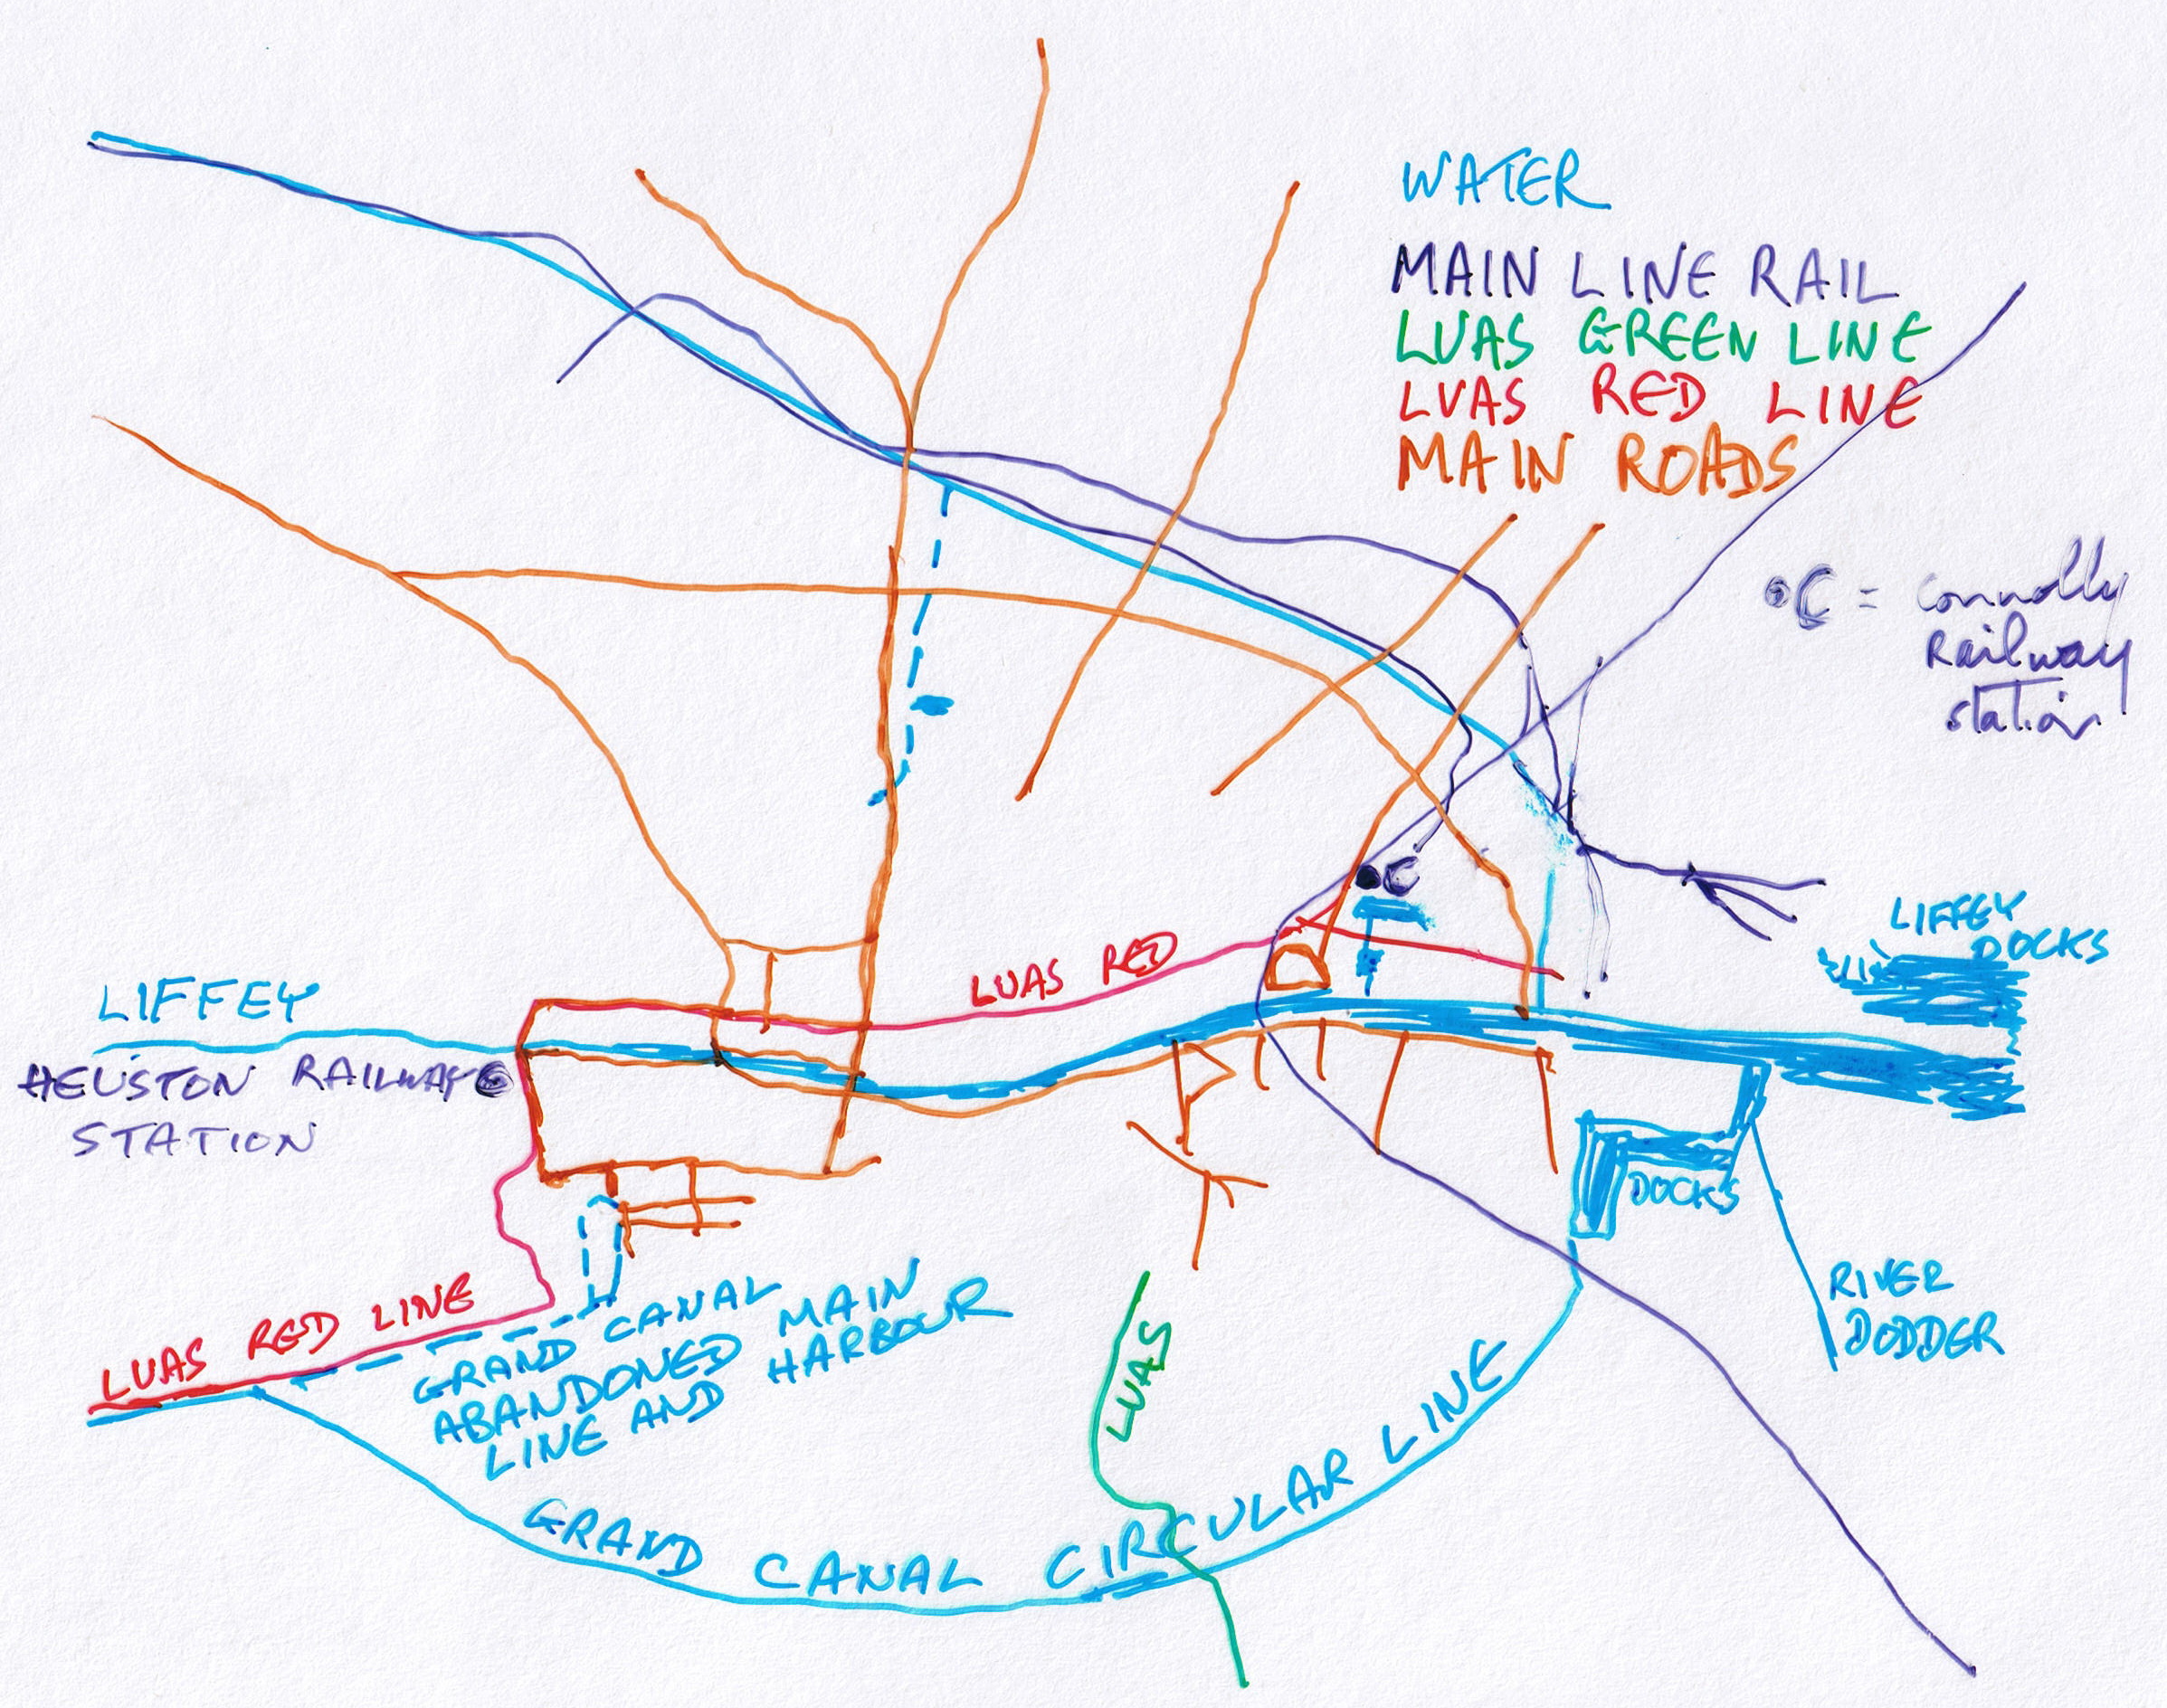 WATER
MAIN LINE RAIL
LUAS GREEN LINE
LUAS RED LINE
MAIN ROADS
C = Connolly
Railway
station
C
LIFFEY
DOCKS
LIFFEY
LUAS RED
HEUSTON RAILWAY
STATION
DOCKS
RIVER
DODDER
LUAS RED LINE
GRAND CANAL
ABANDONED MAIN
LINE AND HARBOUR
LUAS
GRAND CANAL CIRCULAR LINE